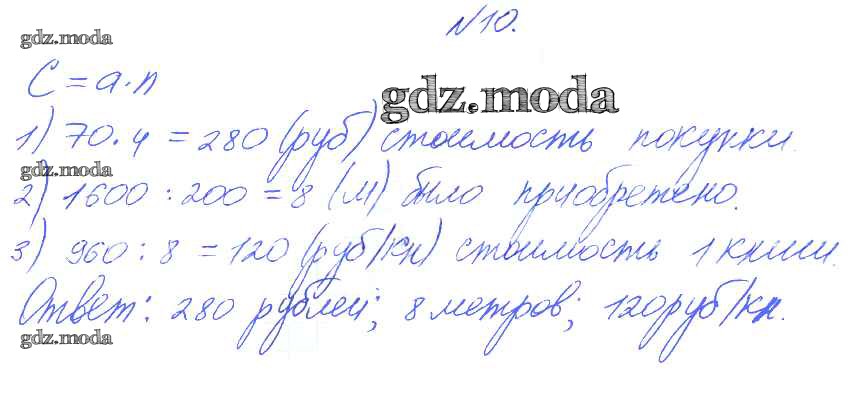 №10.
gdz.moda
C = a · n
gdz.moda
1) 70 · 4 = 280 (руб) стоимость покупки.
gdz.moda
2) 1600 : 200 = 8 (м) было приобретено.
3) 960 : 8 = 120 (руб/кн) стоимость 1 книги.
Ответ: 280 рублей; 8 метров; 120 руб/кн.
gdz.moda